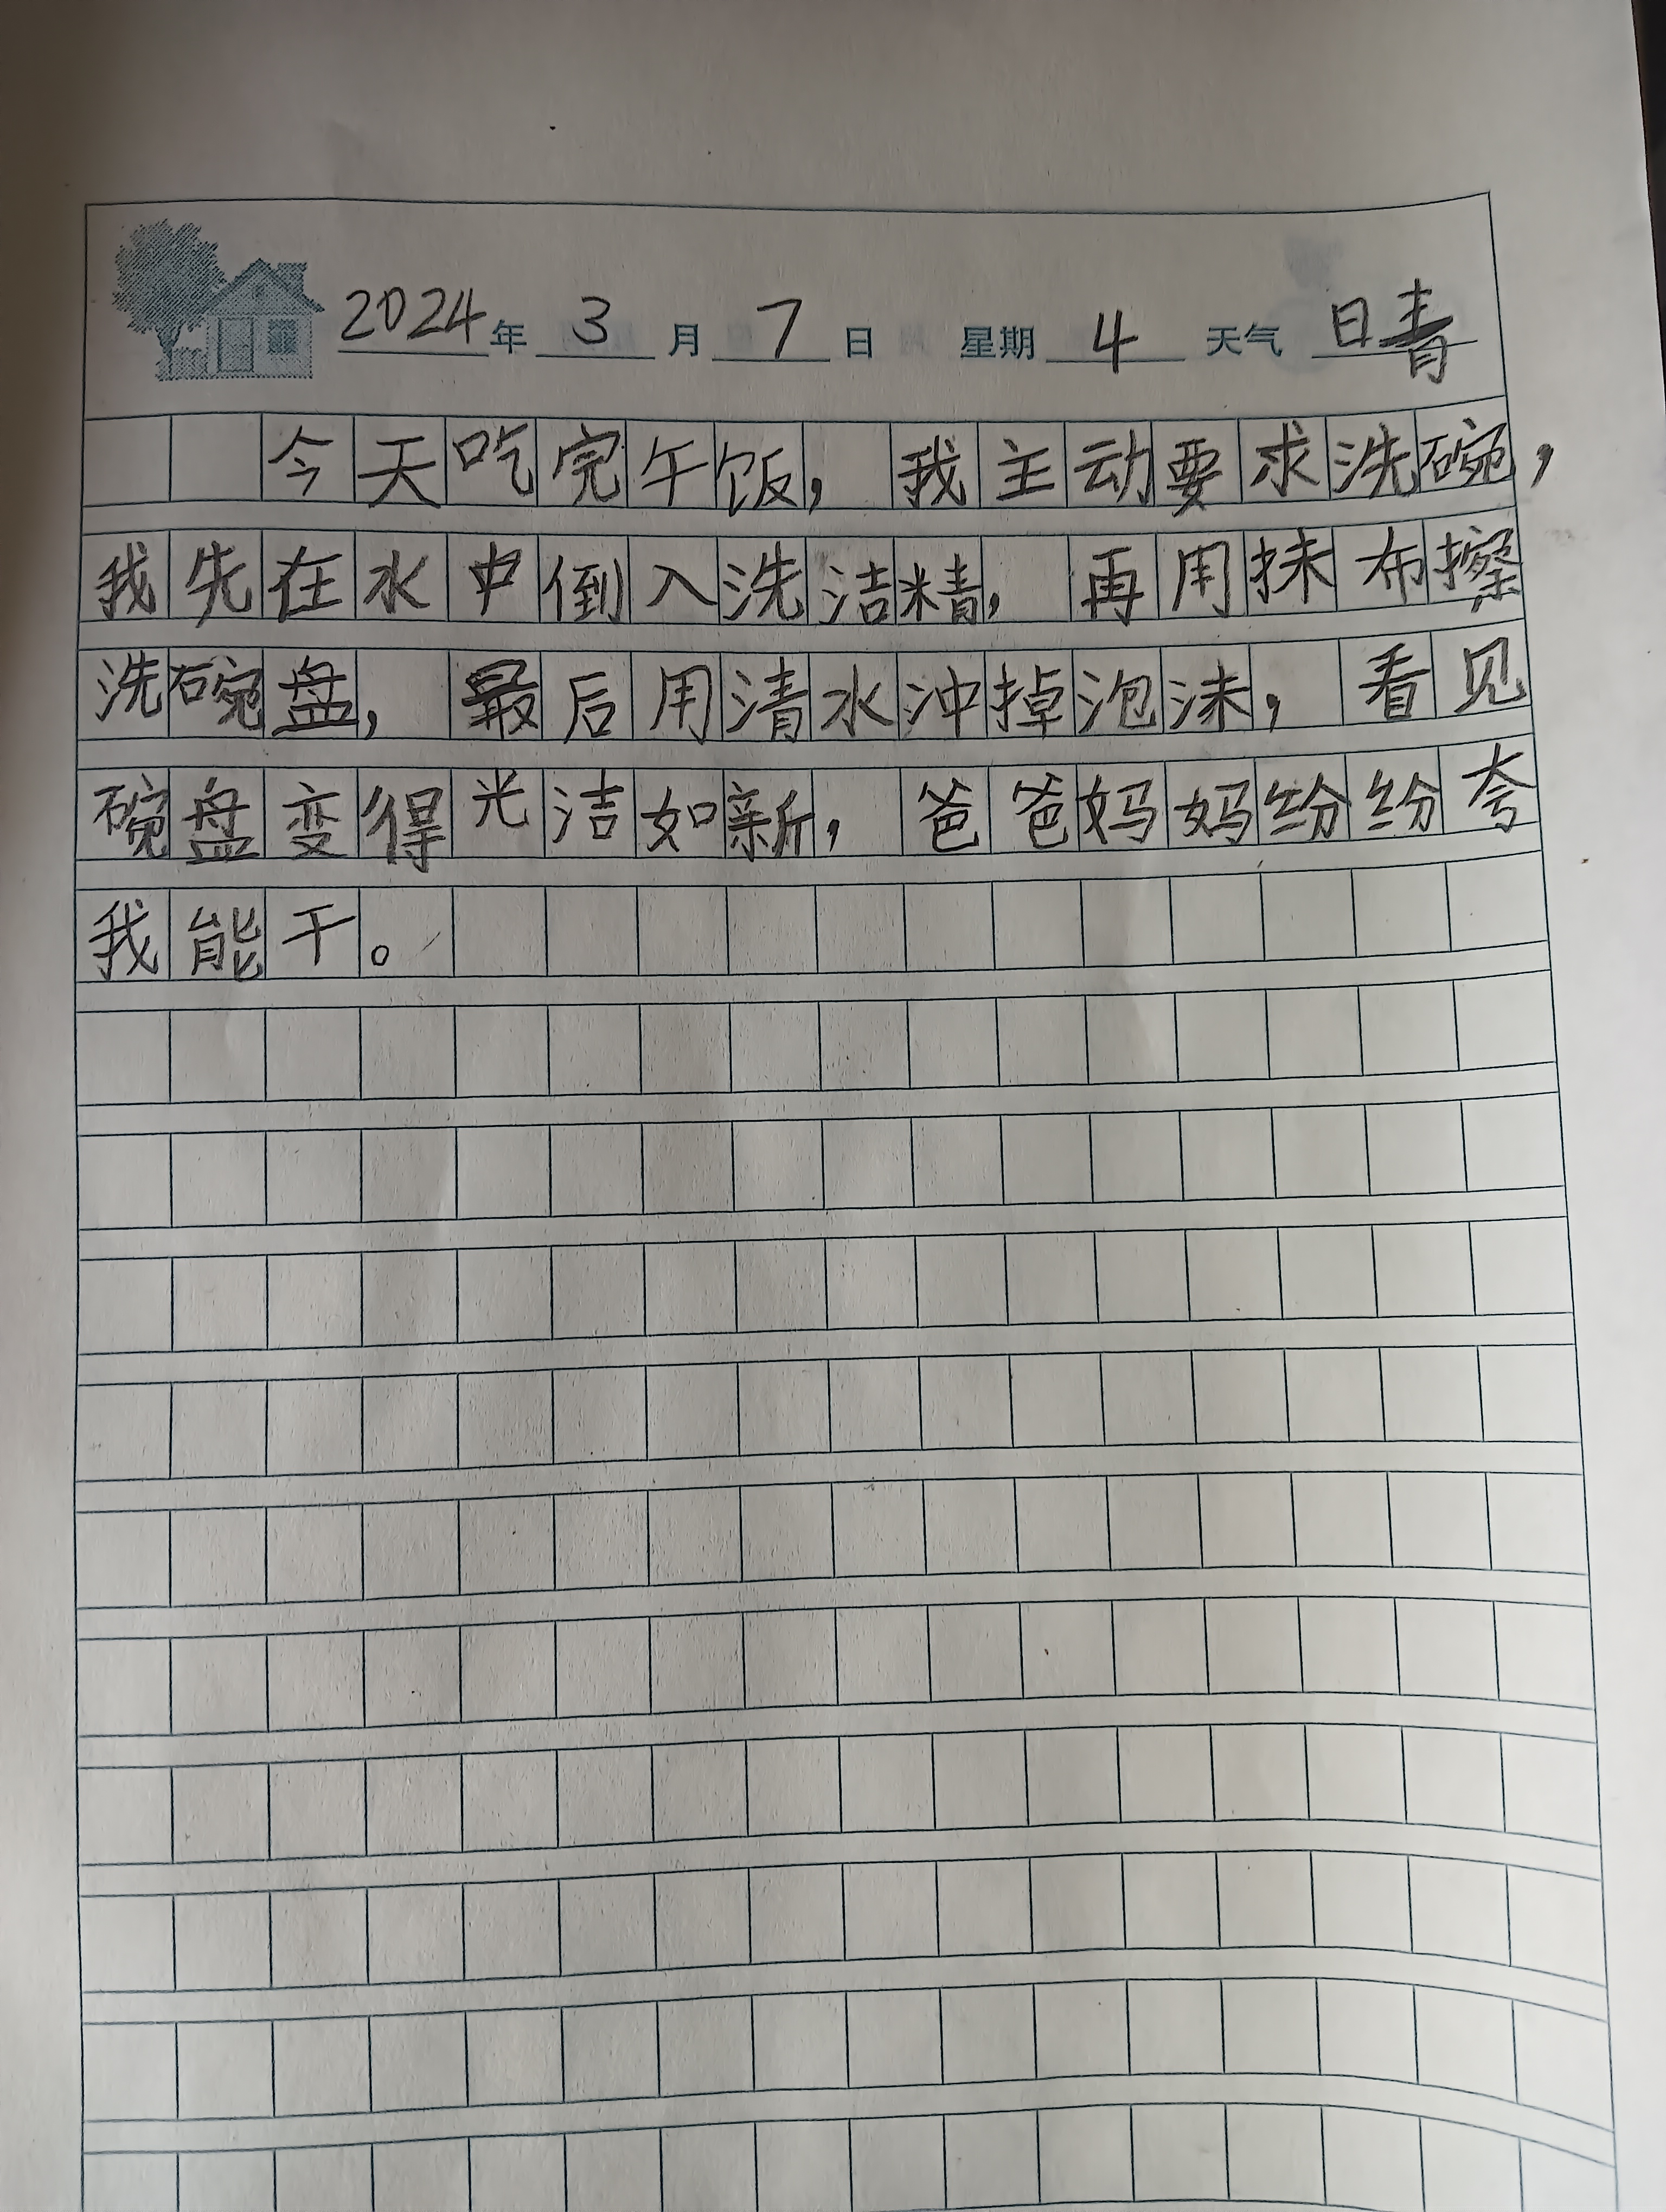 2024年 3月 7日 星期 4 天气 晴
今天吃完午饭，我主动要求洗碗，
我先在水中倒入洗洁精，再用抹布擦
洗碗盘，最后用清水冲掉泡沫，看见
碗盘变得光洁如新，爸爸妈妈纷纷夸
我能干。